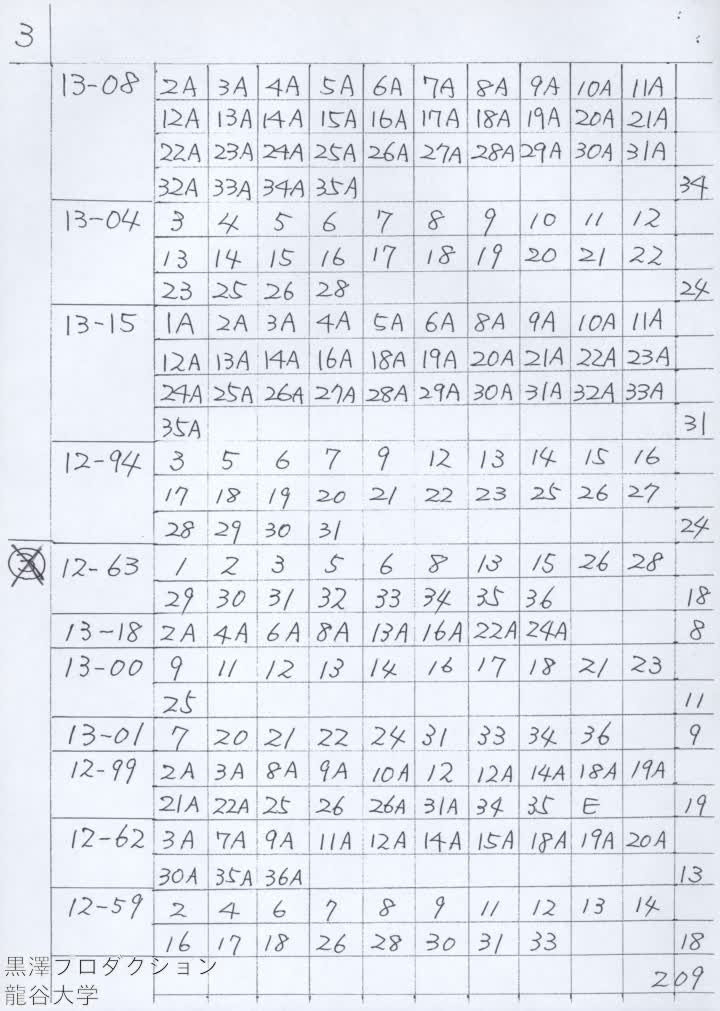 3
13-08 2A 3A 4A 5A 6A 7A 8A 9A 10A 11A
12A 13A 14A 15A 16A 17A 18A 19A 20A 21A
22A 23A 24A 25A 26A 27A 28A 29A 30A 31A
32A 33A 34A 35A 34
13-04 3 4 5 6 7 8 9 10 11 12
13 14 15 16 17 18 19 20 21 22
23 25 26 28 24
13-15 1A 2A 3A 4A 5A 6A 8A 9A 10A 11A
12A 13A 14A 16A 18A 19A 20A 21A 22A 23A
24A 25A 26A 27A 28A 29A 30A 31A 32A 33A
35A 31
12-94 3 5 6 7 9 12 13 14 15 16
17 18 19 20 21 22 23 25 26 27
28 29 30 31 24
3 12-63 1 2 3 5 6 8 13 15 26 28
29 30 31 32 33 34 35 36 18
13-18 2A 4A 6A 8A 13A 16A 22A 24A 8
13-00 9 11 12 13 14 16 17 18 21 23
25 11
13-01 7 20 21 22 24 31 33 34 36 9
12-99 2A 3A 8A 9A 10A 12 12A 14A 18A 19A
21A 22A 25 26 26A 31A 34 35 E 19
12-62 3A 7A 9A 11A 12A 14A 15A 18A 19A 20A
30A 35A 36A 13
12-59 2 4 6 7 8 9 11 12 13 14
16 17 18 26 28 30 31 33 18
209
黒澤プロダクション
龍谷大学